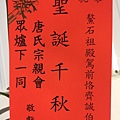 鰲石祖殿駕前恪齊誠伯
聖誕千秋
唐氏宗親會
眾爐下一同
敬